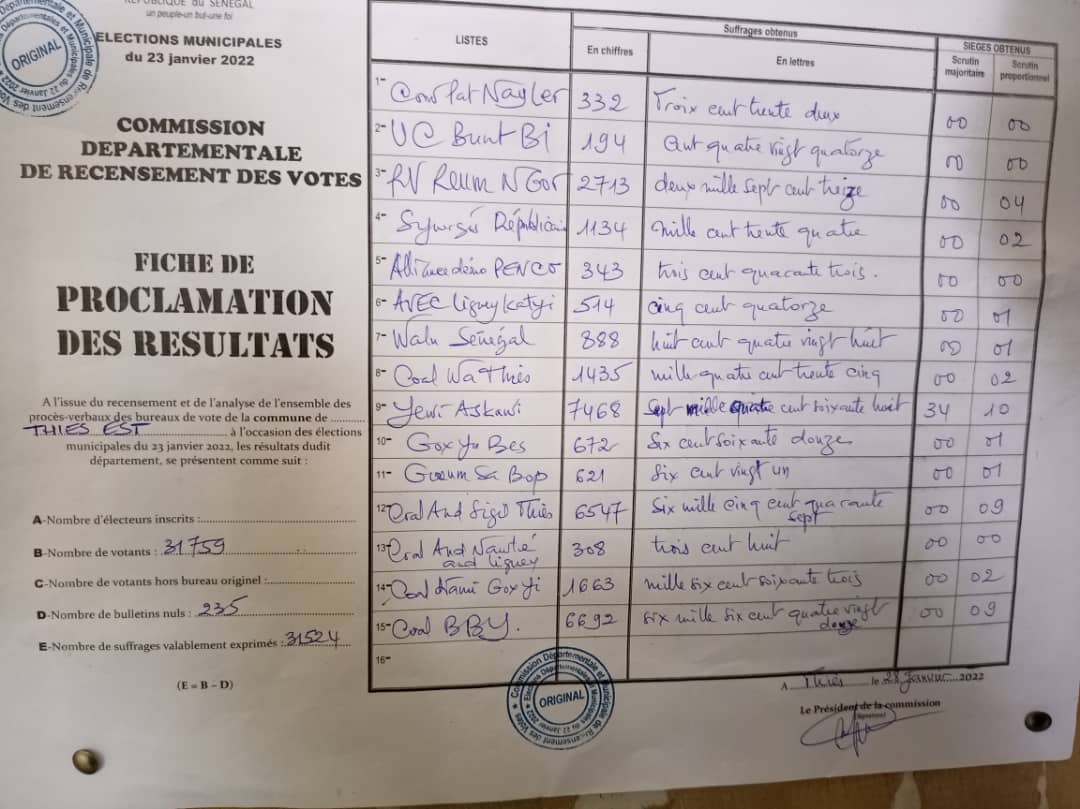 REPUBLIQUE du SENEGAL
un peuple-un but-une foi
ORIGINAL
ELECTIONS MUNICIPALES
du 23 janvier 2022
COMMISSION
DEPARTEMENTALE
DE RECENSEMENT DES VOTES
FICHE DE
PROCLAMATION
DES RESULTATS
A l'issue du recensement et de l'analyse de l'ensemble des
procès-verbaux des bureaux de vote de la commune de
THIES EST à l'occasion des élections
municipales du 23 janvier 2022, les résultats dudit
département, se présentent comme suit :
A-Nombre d'électeurs inscrits :
B-Nombre de votants : 31759
C-Nombre de votants hors bureau originel :
D-Nombre de bulletins nuls : 235
E-Nombre de suffrages valablement exprimés : 31524
(E = B – D)
LISTES
Suffrages obtenus
En chiffres
En lettres
SIEGES OBTENUS
Scrutin majoritaire
Scrutin proportionnel
1- 332 Troix cent trente deux 00 00
2- UC Bunt Bi 194 cent quatre vingt quatorze 00 00
3- RV Reum NGor 2713 deux mille sept cent treize 00 04
4- Synergis Républicai 1134 mille cent trente quatre 00 02
5- Alliance démo PENCO 343 trois cent quarante trois. 00 00
6- AVEC liguey Katyi 514 cinq cent quatorze 00 01
7- Walu Sénégal 888 huit cent quatre vingt huit 00 01
8- Coal Wa Thiès 1435 mille quatre cent trente cinq 00 02
9- Yewi Askawi 7468 Sept mille quatre cent soixante huit 34 10
10- Gox Yu Bes 672 Six cent soixante douze 00 01
11- Gueum Sa Bop 621 Six cent vingt un 00 01
12- And Sigel Thiès 6547 Six mille cinq cent quarante sept 00 09
13- And and liguey 308 trois cent huit 00 00
14- Coal Goxyi 1663 mille six cent soixante trois 00 02
15- Coal BBY. 6692 six mille six cent quatre vingt douze 00 09
16-
A Thiès le 28 Janvier 2022
Le Président de la commission
(Signature)
ORIGINAL